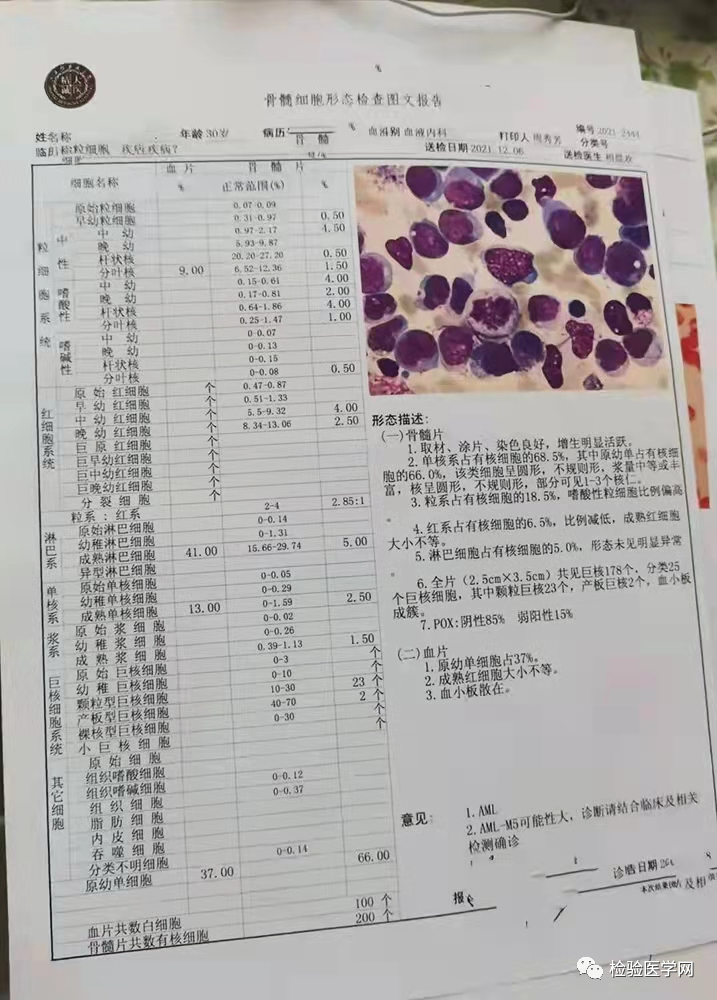 骨髓细胞形态检查图文报告
姓名称 年龄30岁 病历: 血液别 血液内科 打印人 周秀芳 编号 2021-2444
分类号
临 粒细胞 疾病? 送检日期2021.12.06 送检医生
细胞名称 血片 % 骨髓片 正常范围(%) %
粒细胞系统
原始粒细胞 0.07-0.09
早幼粒细胞 0.31-0.97 0.50
中性
中幼 0.97-2.17 4.50
晚幼 5.93-9.87
杆状核 20.20-27.20 0.50
分叶核 9.00 6.52-12.36 1.50
嗜酸性
中幼 0.15-0.61 4.00
晚幼 0.17-0.81 2.00
杆状核 0.64-1.86 4.00
分叶核 0.25-1.47 1.00
嗜碱性
中幼 0-0.07
晚幼 0-0.13
杆状核 0-0.15
分叶核 0-0.08 0.50
红细胞系统
原始红细胞 个 0.47-0.87
早幼红细胞 个 0.51-1.33
中幼红细胞 个 5.5-9.32 4.00
晚幼红细胞 个 8.34-13.06 2.50
巨原红细胞 个
巨早幼红细胞 个
巨中幼红细胞 个
巨晚幼红细胞 个
分裂细胞 个
粒系:红系 2-4 2.85:1
淋巴系
原始淋巴细胞 0-0.14
幼稚淋巴细胞 0-1.31
成熟淋巴细胞 41.00 15.66-29.74 5.00
异型淋巴细胞
单核系
原始单核细胞 0-0.05
幼稚单核细胞 0-0.29
成熟单核细胞 13.00 0-1.59 2.50
浆系
原始浆细胞 0-0.02
幼稚浆细胞 0-0.26
成熟浆细胞 0.39-1.13 1.50
巨核细胞系统
原始巨核细胞 0-3 个
幼稚巨核细胞 0-10 个
颗粒型巨核细胞 10-30 23 个
产板型巨核细胞 40-70 2 个
裸核型巨核细胞 0-30 个
小巨核细胞 个
其它细胞
原始细胞
组织嗜酸细胞
组织嗜碱细胞 0-0.12
组织细胞 0-0.37
脂肪细胞
内皮细胞
吞噬细胞
分类不明细胞 0-0.14
原幼单细胞 37.00 66.00
血片共数白细胞 100 个
骨髓片共数有核细胞 200 个
形态描述:
(一)骨髓片
1.取材、涂片、染色良好,增生明显活跃。
2.单核系占有核细胞的68.5%,其中原幼单占有核细
胞的66.0%,该类细胞呈圆形,不规则形,浆量中等或丰
富,核呈圆形,不规则形,部分可见1-3个核仁。
3.粒系占有核细胞的18.5%,嗜酸性粒细胞比例偏高
。
4.红系占有核细胞的6.5%,比例减低,成熟红细胞
大小不等。
5.淋巴细胞占有核细胞的5.0%,形态未见明显异常
。
6.全片(2.5cm×3.5cm)共见巨核178个,分类25
个巨核细胞,其中颗粒巨核23个,产板巨核2个,血小板
成簇。
7.POX:阴性85% 弱阳性15%
(二)血片
1.原幼单细胞占37%。
2.成熟红细胞大小不等。
3.血小板散在。
意见:
1.AML
2.AML-M5可能性大,诊断请结合临床及相关
检测确诊
诊断日期
报
检验医学网